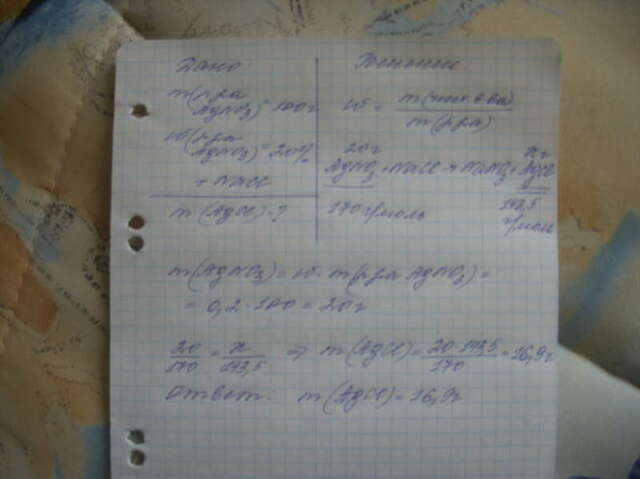 Дано
Решение
m(р-ра AgNO3) = 100г
ω(р-ра AgNO3) = 20%
+ NaCl
m (AgCl) - ?
ω = m(чист. в-ва) / m(р.ра)
20г xг
AgNO3 + NaCl → NaNO3 + AgCl
170 г/моль 143,5 г/моль
m(AgNO3) = ω · m(р.ра AgNO3) =
= 0,2 · 100 = 20г
20/170 = x/143,5 ⇒ m(AgCl) = 20·143,5/170 = 16,9г
Ответ: m(AgCl) = 16,9г